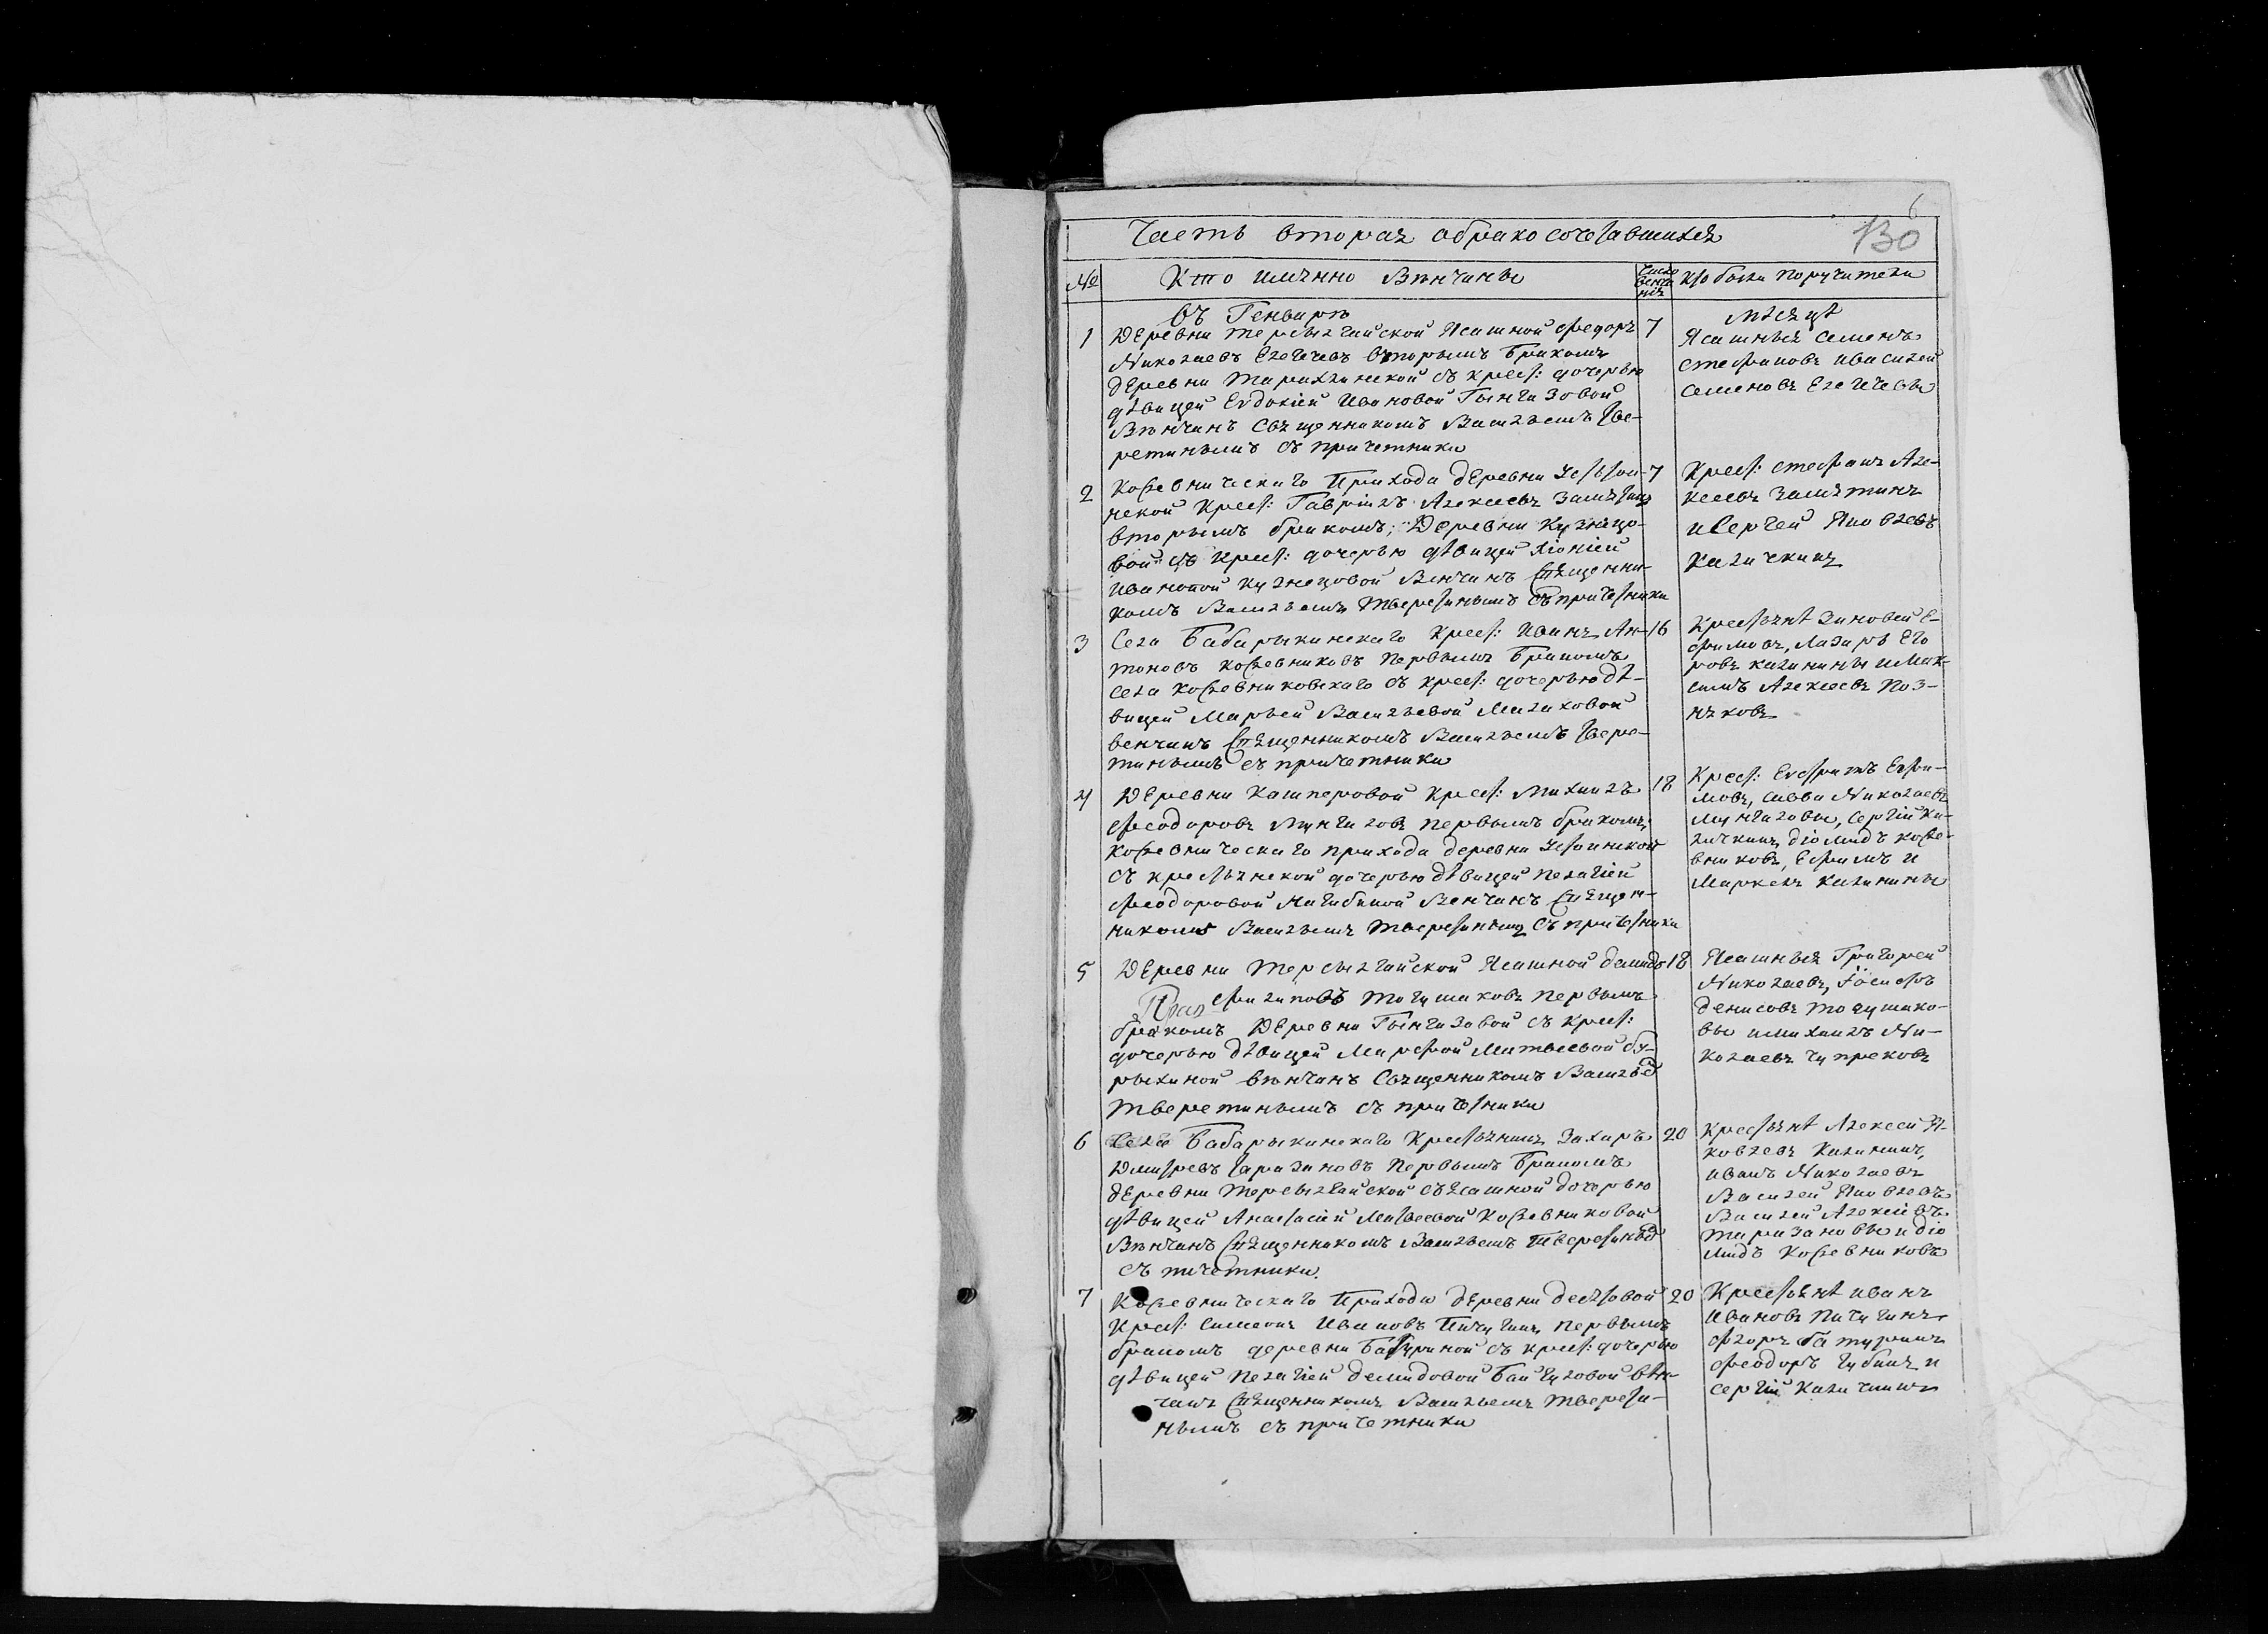 6
130
Часть вторая о бракосочетавшихся
№ Кто имянно венчаны Число венчанія Кто были поручители
въ Генваре месяце
1 Деревни Терсылгайской Ясашной Федоръ 7
Николаевъ Елегечевъ вторымъ бракомъ
деревни Тарахлинской съ крест: дочерью
девицей Евдокіей Ивановой Тынгизовой
венчанъ Священникомъ Васильемъ Тве-
ретинымъ съ причетники
Ясашныя Семенъ
Стефановъ и Василей
Семеновъ Елегечевы
2 Кожевническаго Прихода деревни 7
Крест: Гавріилъ Алексеевъ Замятинъ
вторымъ бракомъ; Деревни Кузнецо-
вой съ Крест: дочерью девицей Хіоніей
Ивановой Кузнецовой венчанъ Священни-
комъ Васильемъ Тверетинымъ съ причетники
Крест: Стефанъ Але-
ксеевъ Замятинъ
и Сергей Яковлевъ
Калич
3 Села Бабарыкинскаго Крест: Иванъ Ан- 16
тоновъ Кожевниковъ первымъ бракомъ
села Кожевниковскаго съ крест: дочерью де-
вицей Марьей Васильевой Малаховой
венчанъ Священникомъ Васильемъ Твере-
тинымъ съ причетники
Крестьяне Зиновей Е-
фимовъ, Лазарь Его
ровъ Калинины и Мак-
симъ Алексеевъ Поз-
няковъ
4 Деревни Каштаровой Крест: Михаилъ 18
Феодоровъ Мунгаловъ первымъ бракомъ,
Кожевническаго прихода деревни
съ крестьянской дочерью девицей Пелагіей
Феодоровой Нагибиной венчанъ Священ-
никомъ Васильемъ Тверетинымъ съ причетники
Крест: Евграфъ Ефи-
мовъ, Савва Николаевъ
Мунгаловы, Сергій Ка-
личкинъ, Діомидъ Коже-
вниковъ, Ефимъ и
Маркелъ Калинины
5 Деревни Терсылгайской Ясашной Демидъ 18
Филиповъ Тогушаковъ первымъ
бракомъ Деревни Тынгизовой съ крест:
дочерью девицей Марфой Матвеевой Бу-
рыхиной венчанъ Священникомъ Васильемъ
Тверетинымъ съ причетники
Ясашныя Григорей
Николаевъ, Іосифъ
Денисовъ Тогушако-
вы и Михаилъ Ни-
колаевъ Чупрековъ
6 Села Бабарыкинскаго Крестьянинъ Захаръ 20
Дмитревъ Таразановъ первымъ бракомъ
деревни Терсылгайской съ Ясашной дочерью
девицей Анастасіей Матвеевой Кожевниковой
венчанъ Священникомъ Васильемъ Тверетинымъ
съ пичетники.
Крестьяне Алексей Я-
ковлевъ Калининъ,
Иванъ Николаевъ
Василей Яковлевъ
Василей Алексіевъ
Таразановы и Діо
мидъ Кожевниковъ
7 Кожевническаго Прихода деревни Десятовой 20
Крест: Симеонъ Ивановъ Пичугинъ первымъ
бракомъ деревни Батуриной съ крест: дочерью
девицей Пелагіей Демидовой Байгуловой вен-
чанъ Священникомъ Васильемъ Твере-
тинымъ съ причетники
Крестьяне Иванъ
Ивановъ Пичугинъ
Флоръ Батуринъ
Феодоръ Губинъ и
Сергій Каличкинъ